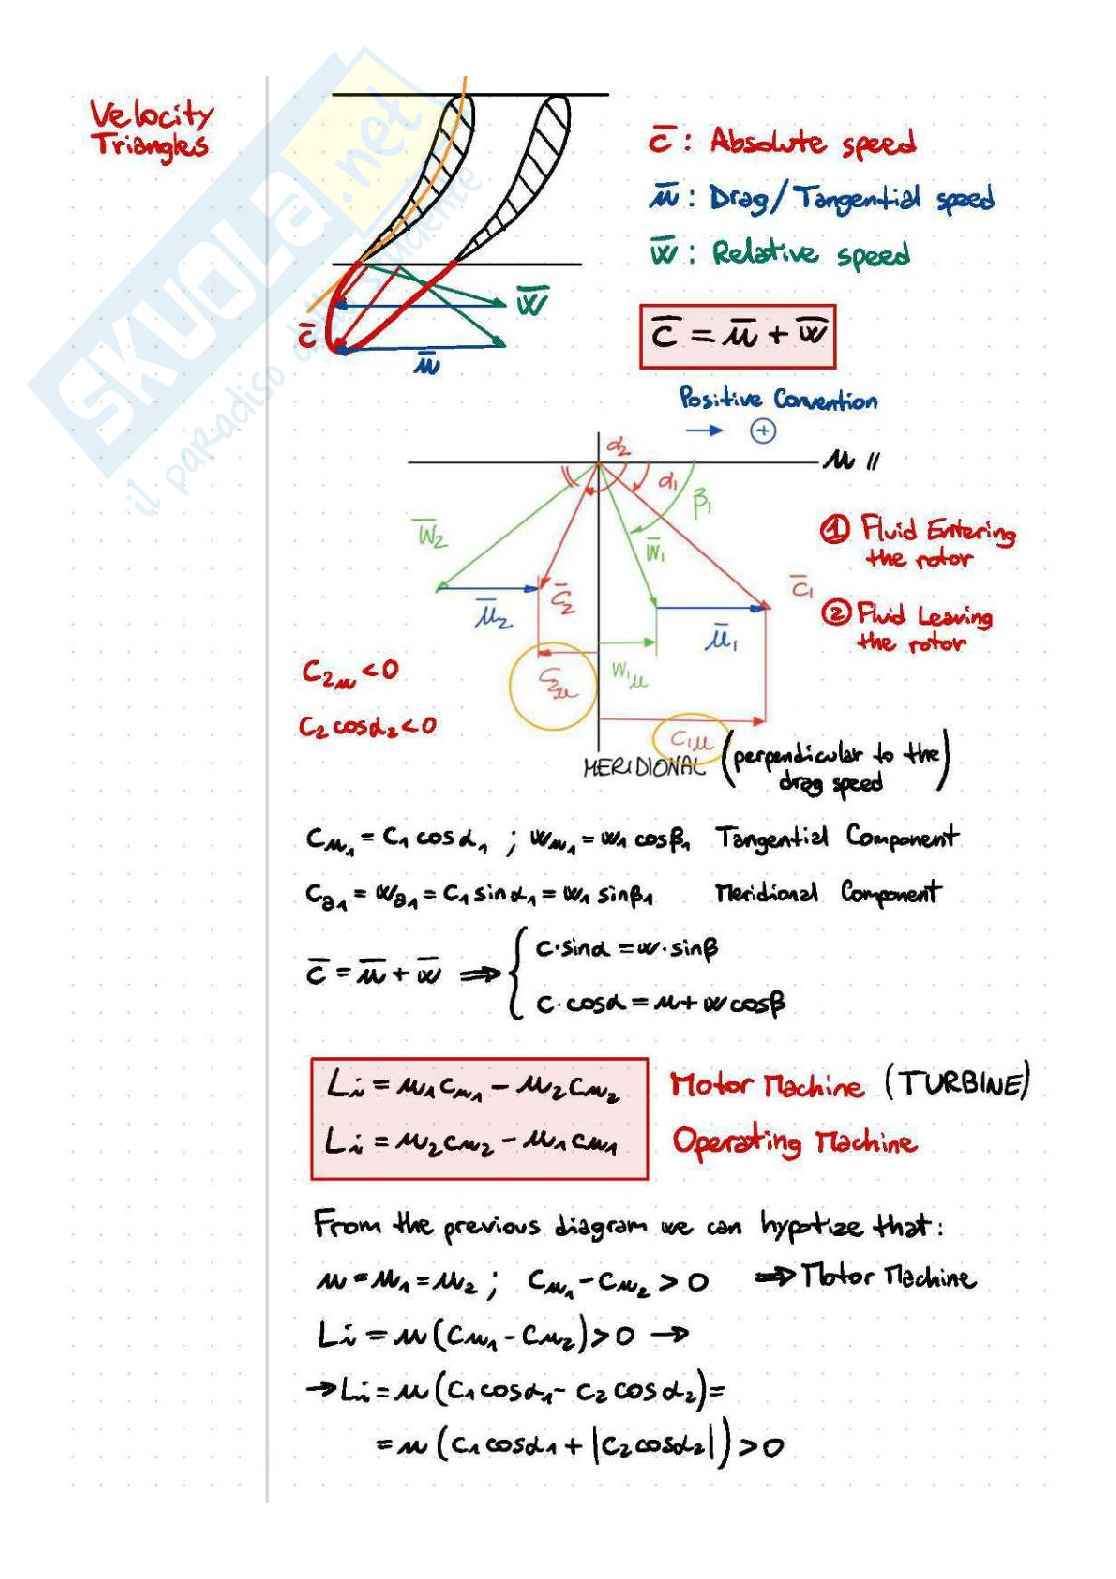 Velocity
Triangles
SKUOLA.net
il paradiso dello studente
c̅ : Absolute speed
u̅ : Drag/Tangential speed
w̅ : Relative speed
w̅
c̅
u̅
c̅ = u̅ + w̅
Positive Convention
→ ⊕
α₂
u //
α₁
β₁
w̅₂
w̅₁
① Fluid Entering
the rotor
c̅₁
c̅₂
u̅₂
u̅₁
② Fluid Leaving
the rotor
C₂ᵤ < 0
C₂ᵤ
W₁ᵤ
C₂ cosα₂ < 0
C₁ᵤ
MERIDIONAL (perpendicular to the
drag speed)
Cᵤ₁ = C₁ cosα₁ ; wᵤ₁ = w₁ cosβ₁ Tangential Component
Cₐ₁ = Wₐ₁ = C₁ sinα₁ = w₁ sinβ₁ Meridional Component
c̅ = u̅ + w̅ ⇒ { c·sinα = w·sinβ
c·cosα = u + w cosβ
Li = u₁cᵤ₁ - u₂cᵤ₂ Motor Machine (TURBINE)
Li = u₂cᵤ₂ - u₁cᵤ₁ Operating Machine
From the previous diagram we can hypotize that:
u = u₁ = u₂ ; Cᵤ₁ - Cᵤ₂ > 0 ⇒ Motor Machine
Li = u (Cᵤ₁ - Cᵤ₂) > 0 →
→ Li = u (C₁ cosα₁ - C₂ cosα₂) =
= u (C₁ cosα₁ + |C₂ cosα₂|) > 0